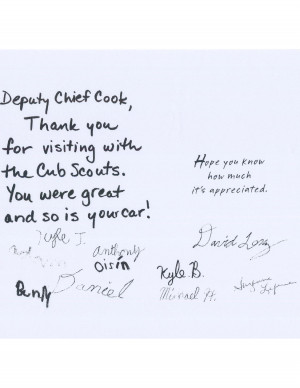 Deputy Chief Cook,
Thank you
for visiting with
the Cub Scouts.
You were great
and so is your car!
Kyle J.
Anthony
Oisín
Daniel
Hope you know
how much
it's appreciated.
David
Kyle B.
Michael H.